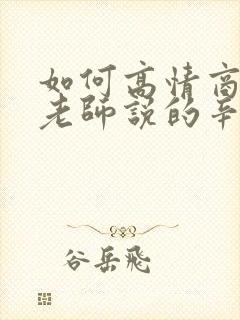 如何高情商
老師說的辛
谷岳飛